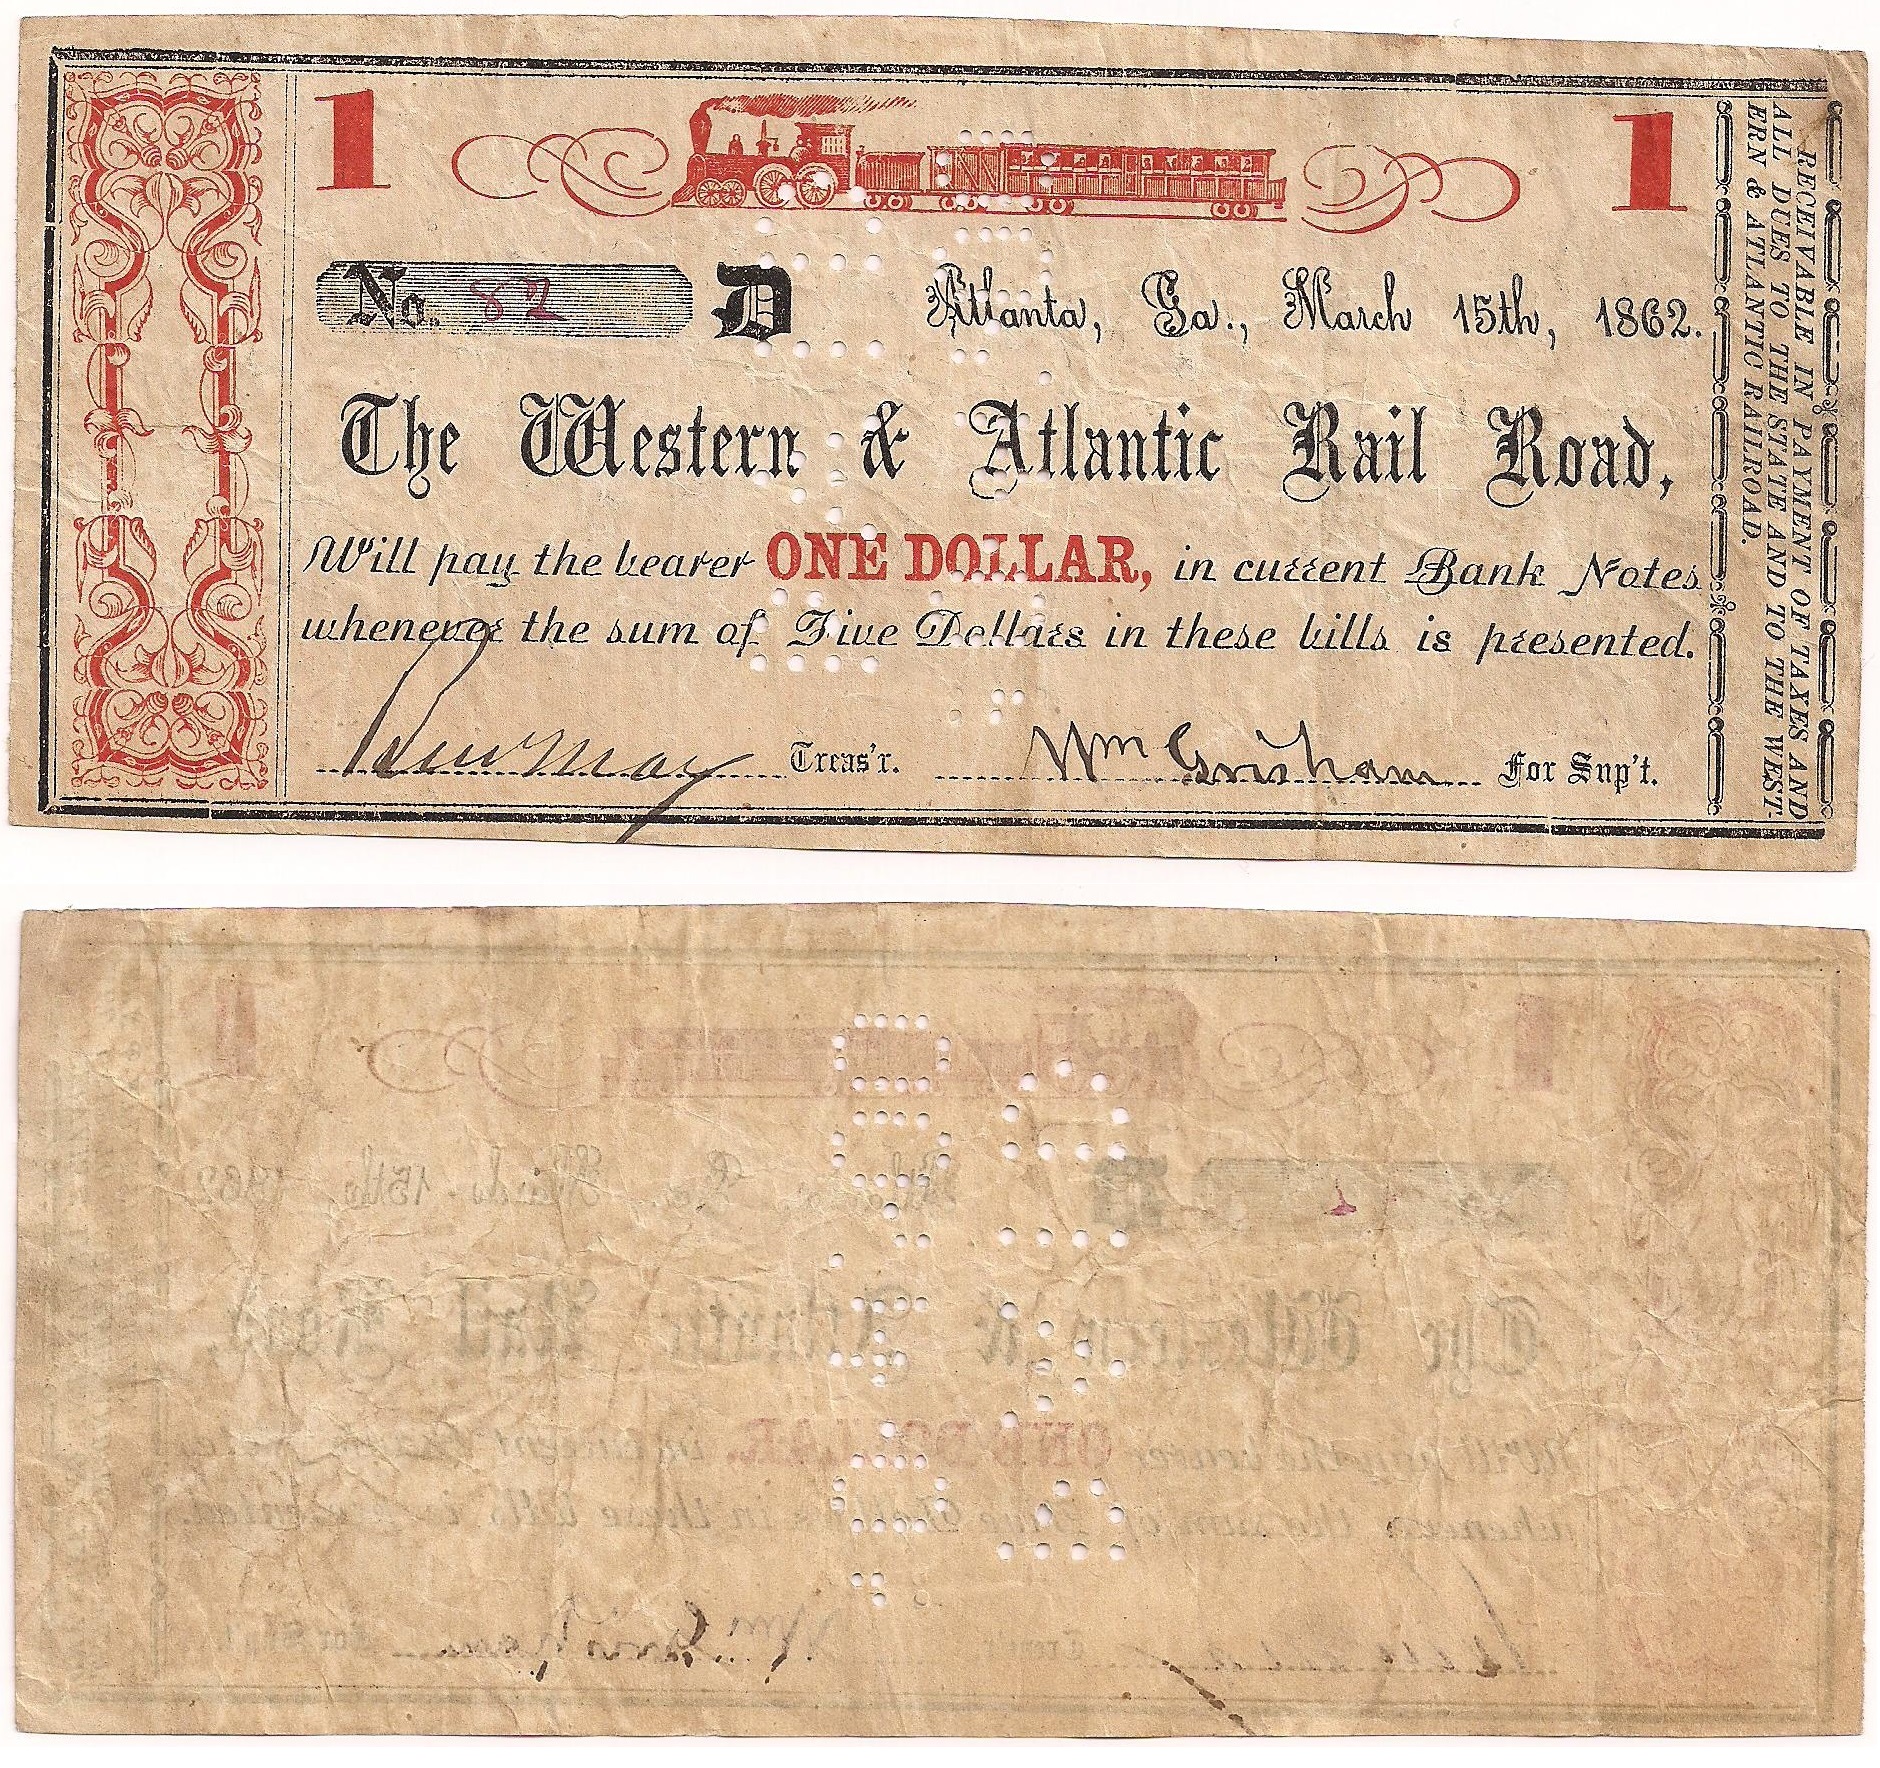 1 1
No. 82 D Atlanta, Ga., March 15th, 1862.
The Western & Atlantic Rail Road,
Will pay the bearer ONE DOLLAR, in current Bank Notes
whenever the sum of Five Dollars in these bills is presented.
Ben May Treas'r. Wm Grisham For Sup't.
RECEIVABLE IN PAYMENT OF TAXES AND
ALL DUES TO THE STATE AND TO THE WEST-
ERN & ATLANTIC RAILROAD.